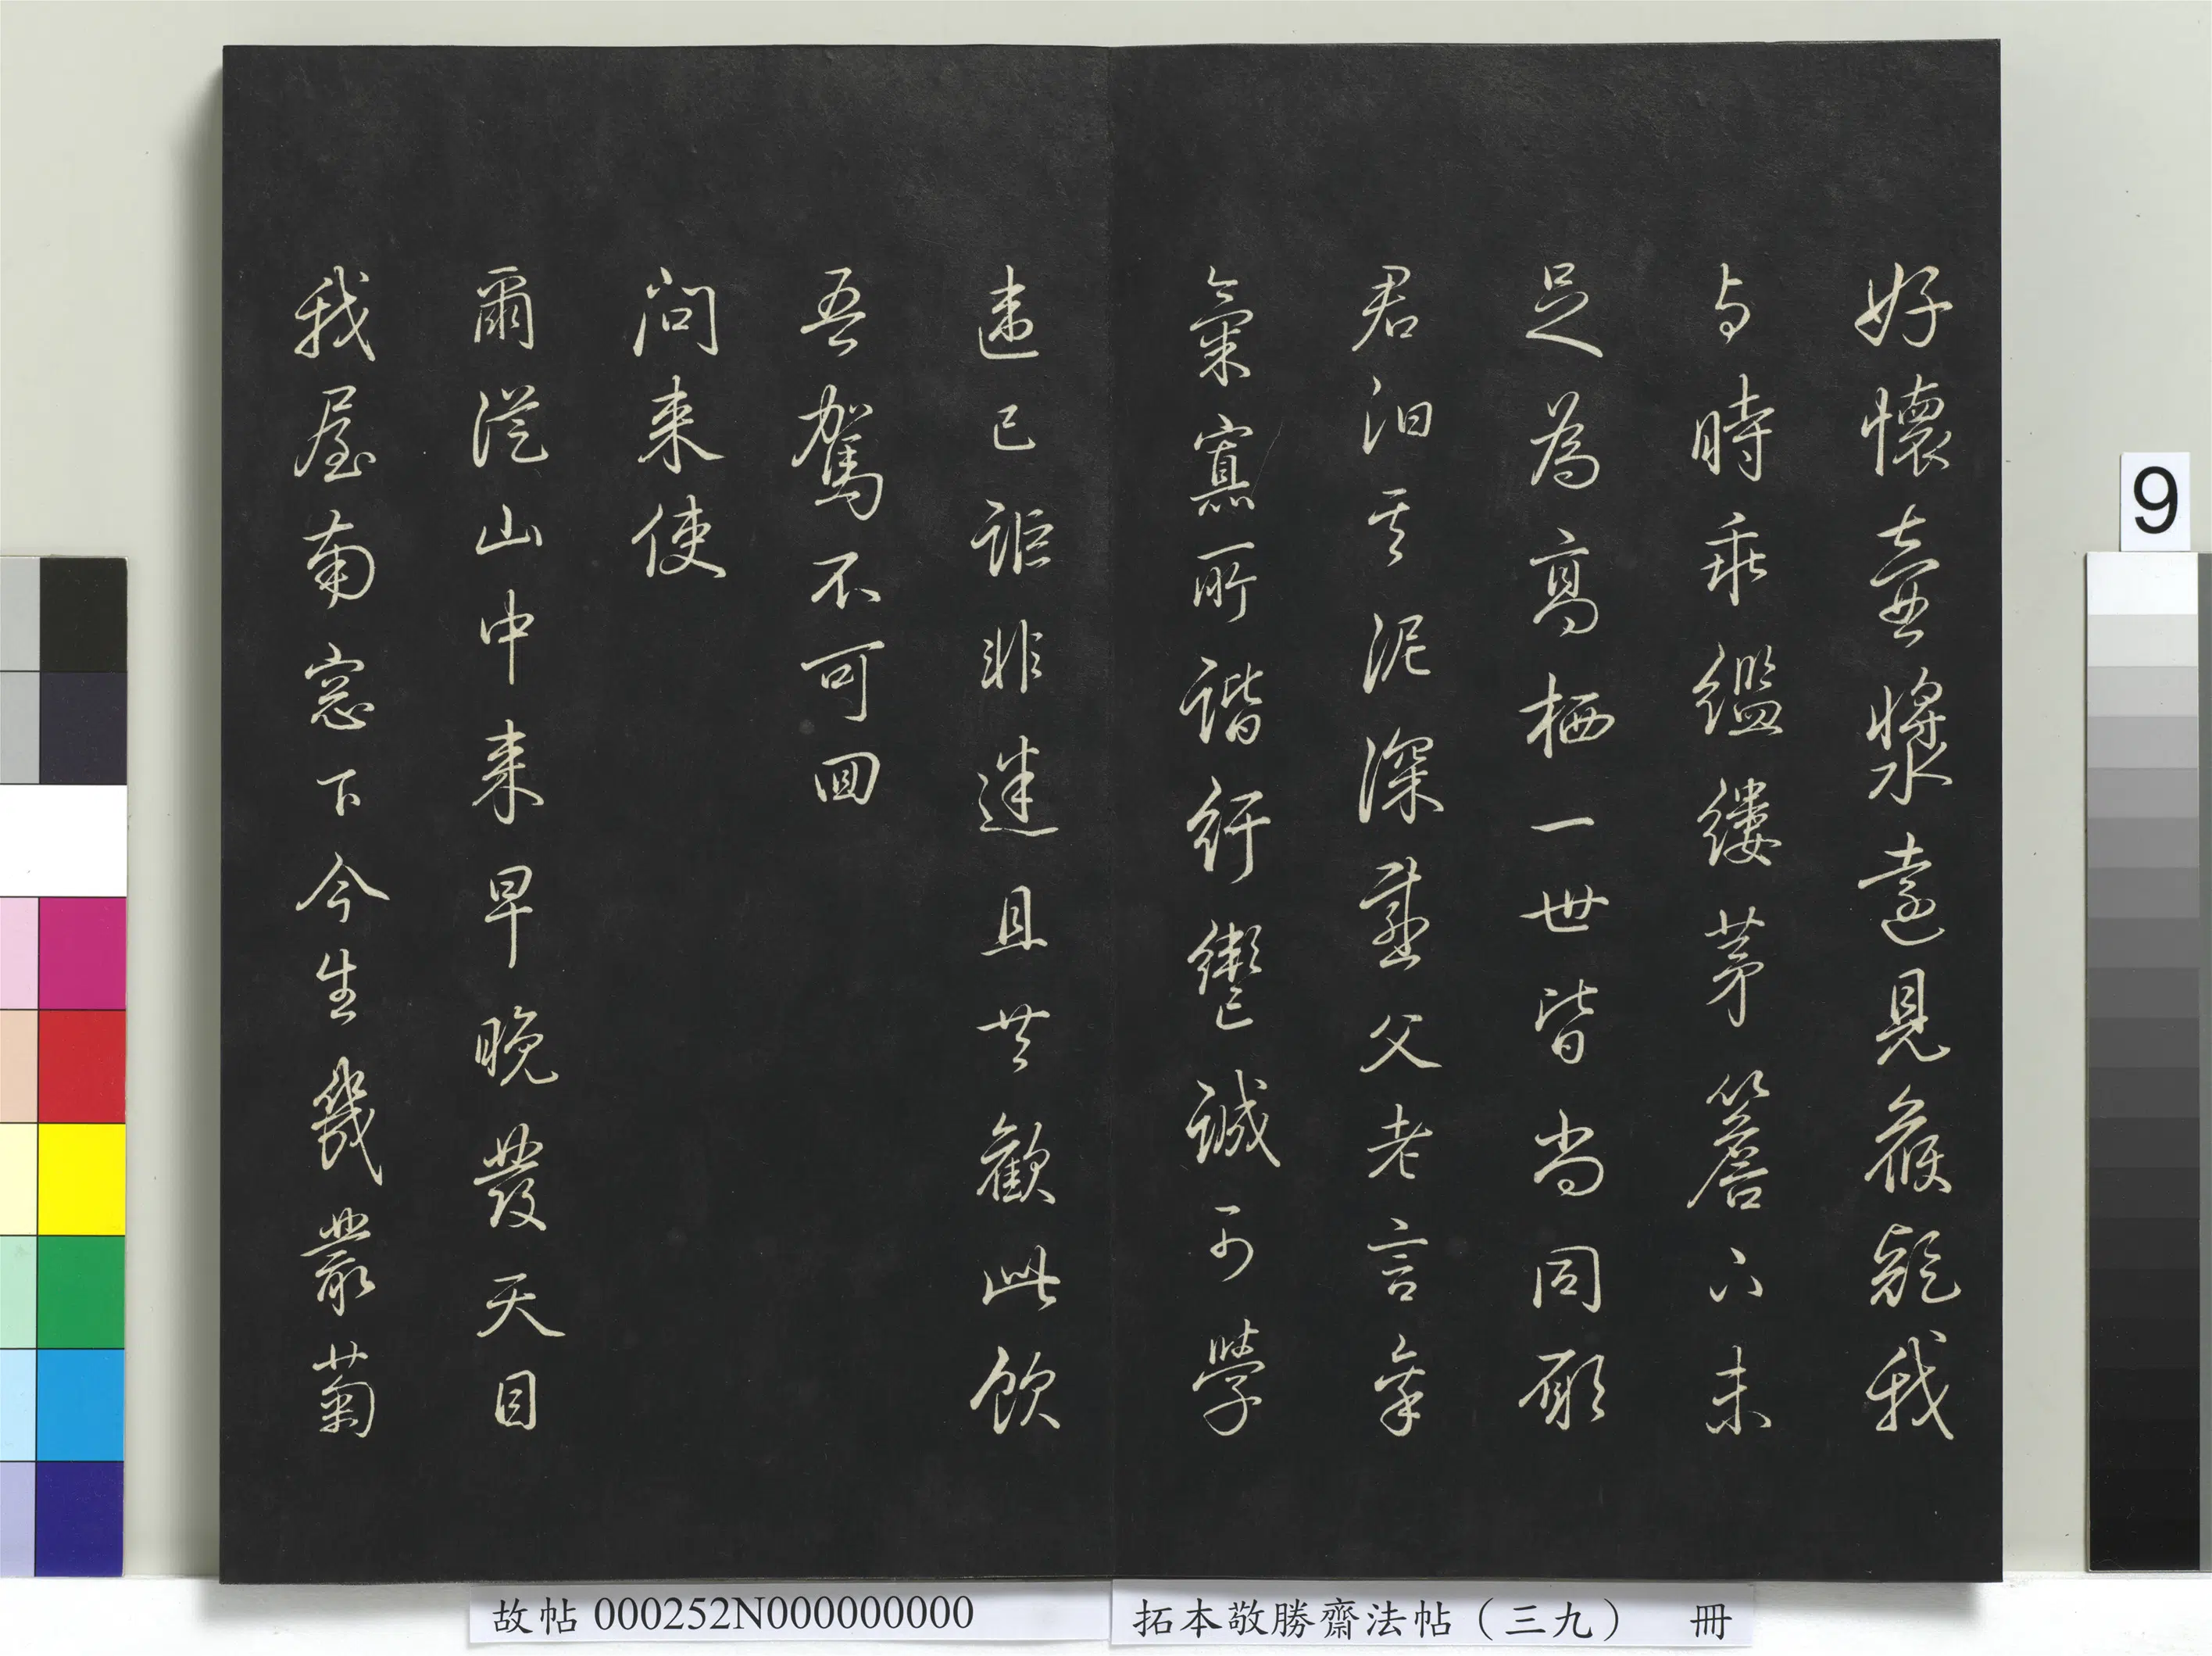 好懷壺漿遠見候疑我
与時乖繿縷茅簷下未
足為高栖一世皆尚同願
君汩其泥深感父老言稟
氣寡所諧紆轡誠可學
違已詎非迷且共歡此飲
吾駕不可回
問来使
爾從山中来早晚發天目
我屋南窓下今生幾叢菊
9
故帖 000252N000000000
拓本敬勝齋法帖(三九) 冊